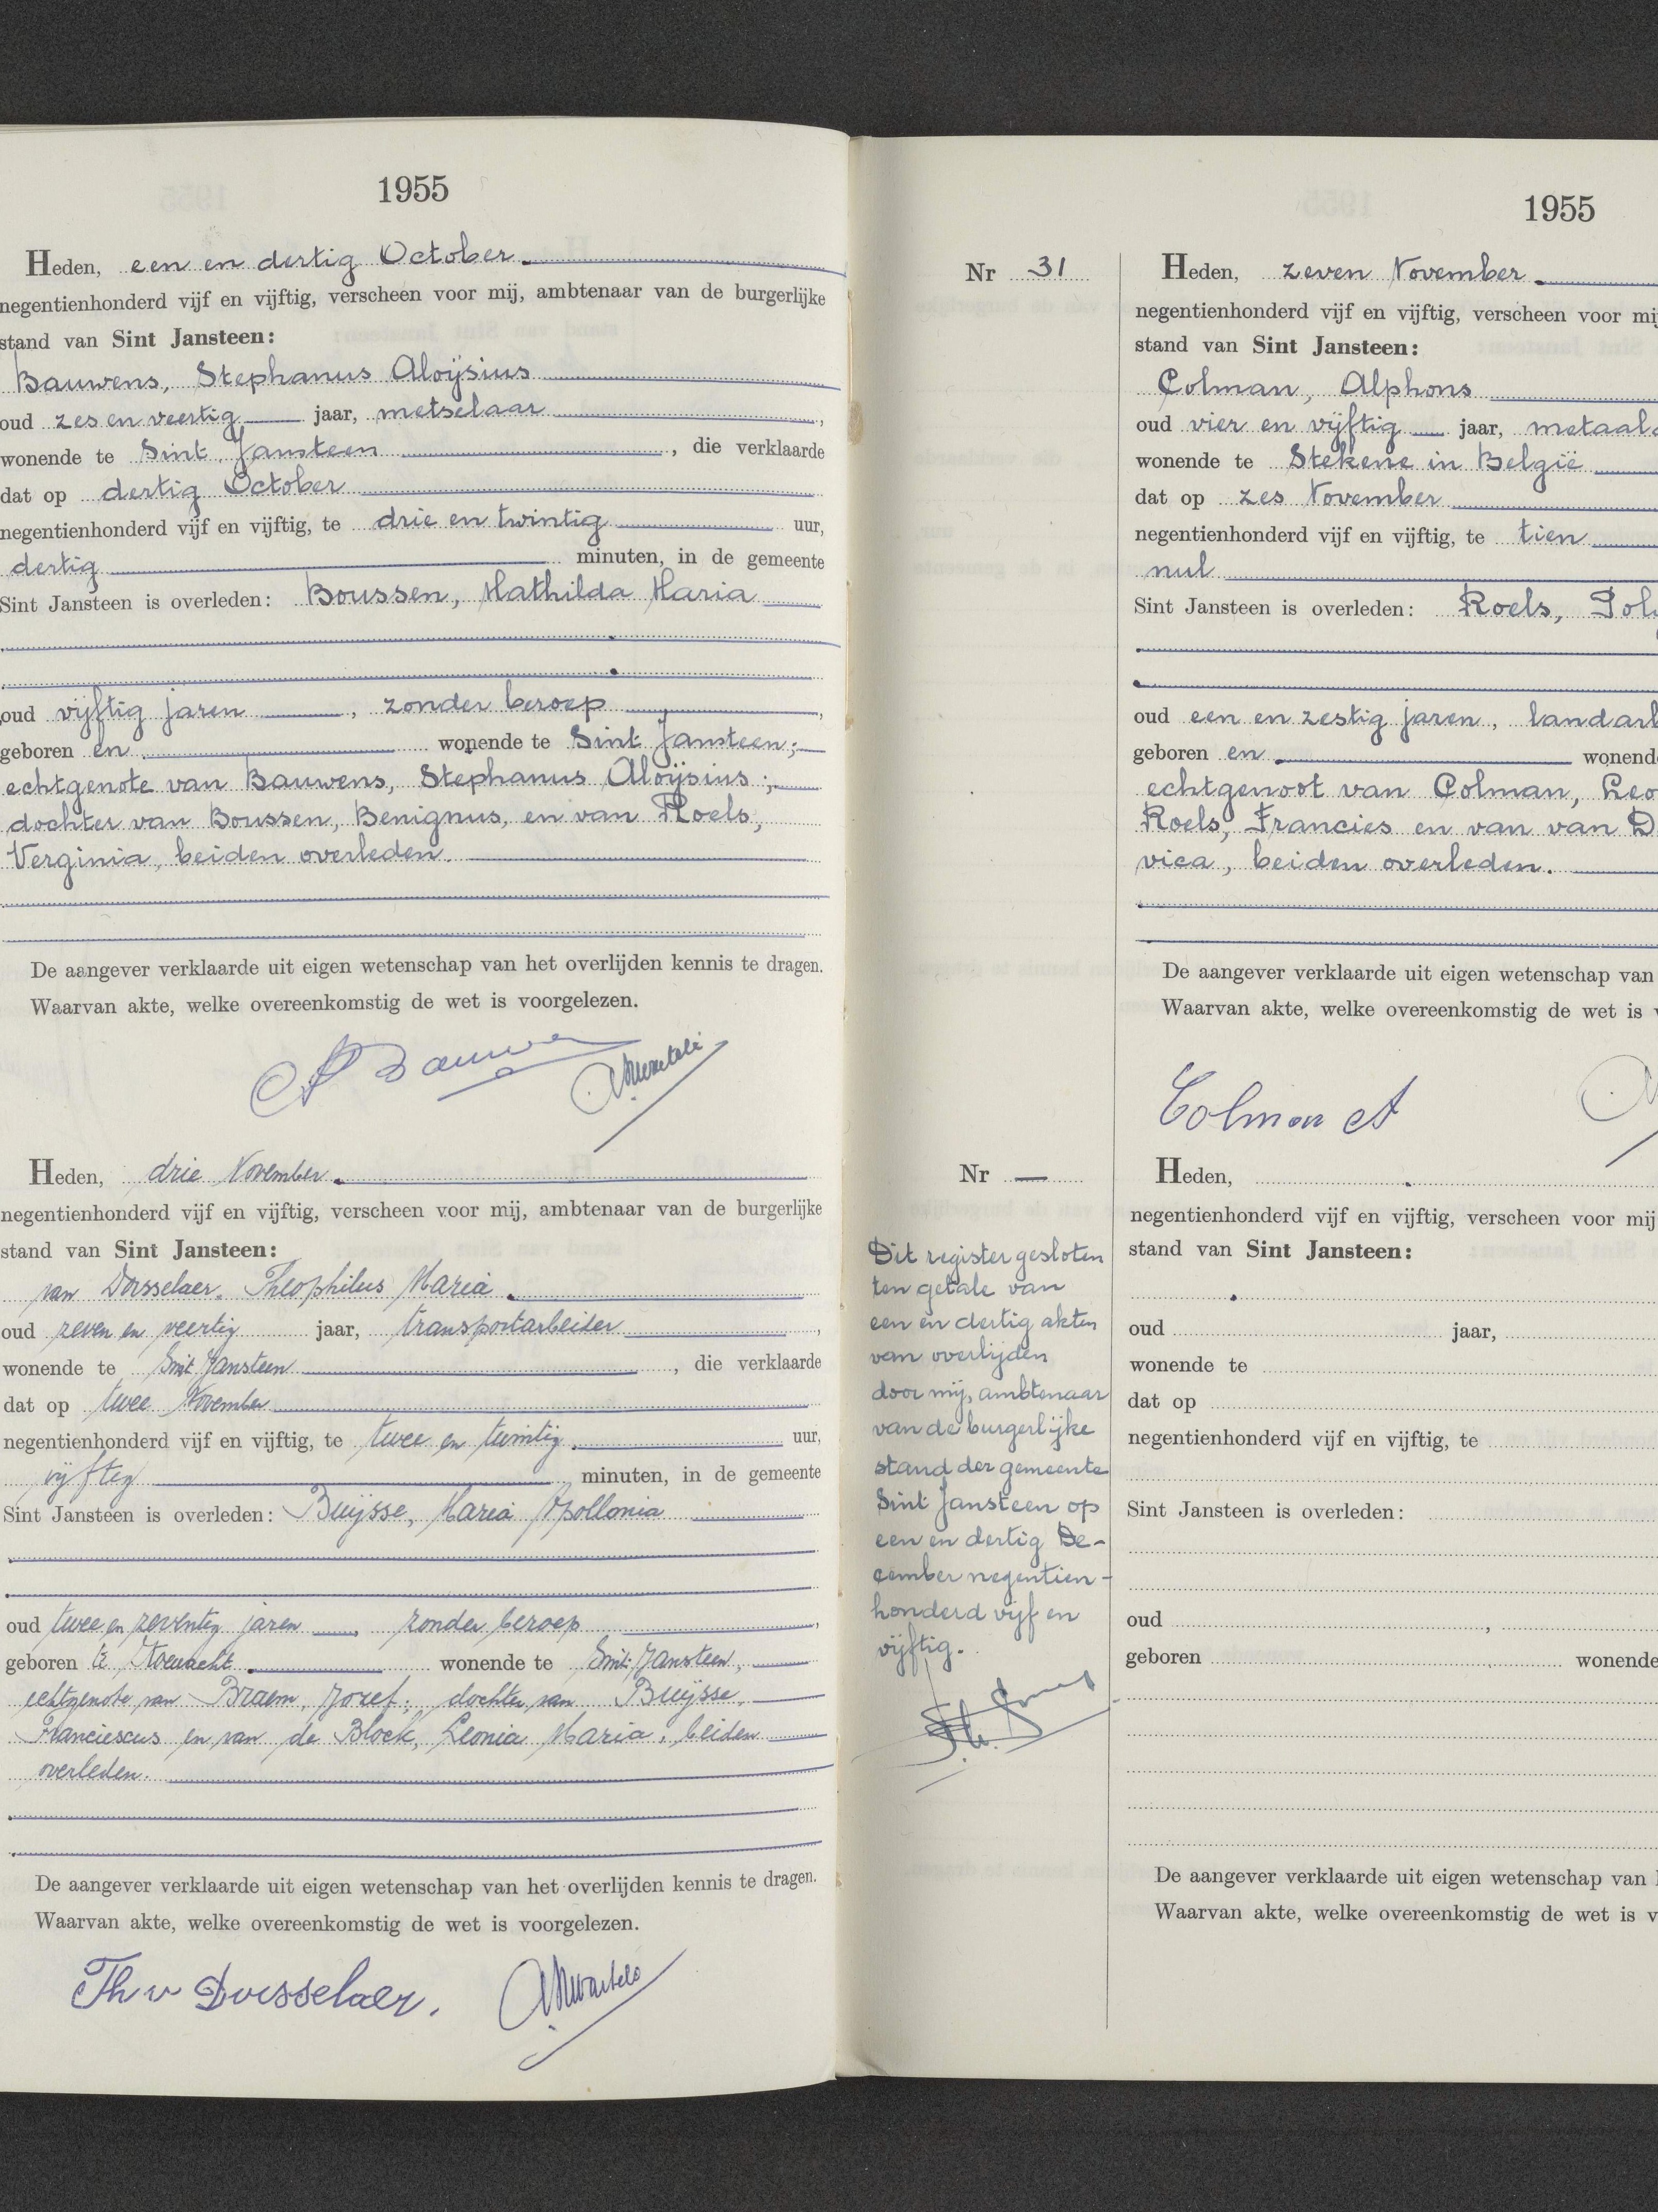 1955
Heden, een en dertig October.
negentienhonderd vijf en vijftig, verscheen voor mij, ambtenaar van de burgerlijke
stand van Sint Jansteen:
Bauwens, Stephanus Aloÿsius
oud zes en veertig jaar, metselaar,
wonende te Sint Jansteen, die verklaarde
dat op dertig October
negentienhonderd vijf en vijftig, te drie en twintig uur,
dertig minuten, in de gemeente
Sint Jansteen is overleden: Boussen, Mathilda Maria
oud vijftig jaren, zonder beroep,
geboren en wonende te Sint Jansteen;
echtgenote van Bauwens, Stephanus Aloÿsius;
dochter van Boussen, Benignus, en van Roels,
Verginia, beiden overleden.
De aangever verklaarde uit eigen wetenschap van het overlijden kennis te dragen.
Waarvan akte, welke overeenkomstig de wet is voorgelezen.
Heden, drie November.
negentienhonderd vijf en vijftig, verscheen voor mij, ambtenaar van de burgerlijke
stand van Sint Jansteen:
van Dorsselaer, Theophilus Maria
oud zeven en veertig jaar, transportarbeider,
wonende te Sint Jansteen, die verklaarde
dat op twee November
negentienhonderd vijf en vijftig, te twee en twintig uur,
vijftig minuten, in de gemeente
Sint Jansteen is overleden: Buijsse, Maria Apollonia
oud twee en zeventig jaren, zonder beroep,
geboren te wonende te Sint Jansteen,
echtgenote van Braem, Jozef; dochter van Buijsse,
Franciescus en van de Block, Leonia Maria, beiden
overleden.
De aangever verklaarde uit eigen wetenschap van het overlijden kennis te dragen.
Waarvan akte, welke overeenkomstig de wet is voorgelezen.
Th v Dorsselaer.
1955
Nr 31
Heden, zeven November
negentienhonderd vijf en vijftig, verscheen voor mij
stand van Sint Jansteen:
Colman, Alphons
oud vier en vijftig jaar, metaal
wonende te Stekene in België
dat op zes November
negentienhonderd vijf en vijftig, te tien
nul
Sint Jansteen is overleden: Roels,
oud een en zestig jaren, landarb
geboren en wonend
echtgenoot van Colman, Leo
Roels, Francies en van van D
vica, beiden overleden.
De aangever verklaarde uit eigen wetenschap van
Waarvan akte, welke overeenkomstig de wet is v
Colman A
Nr —
Dit register gesloten
ten getale van
een en dertig akten
van overlijden
door mij, ambtenaar
van de burgerlijke
stand der gemeente
Sint Jansteen op
een en dertig De-
cember negentien-
honderd vijf en
vijftig.
Heden,
negentienhonderd vijf en vijftig, verscheen voor mij
stand van Sint Jansteen:
oud jaar,
wonende te
dat op
negentienhonderd vijf en vijftig, te
Sint Jansteen is overleden:
oud ,
geboren wonende
De aangever verklaarde uit eigen wetenschap van
Waarvan akte, welke overeenkomstig de wet is v